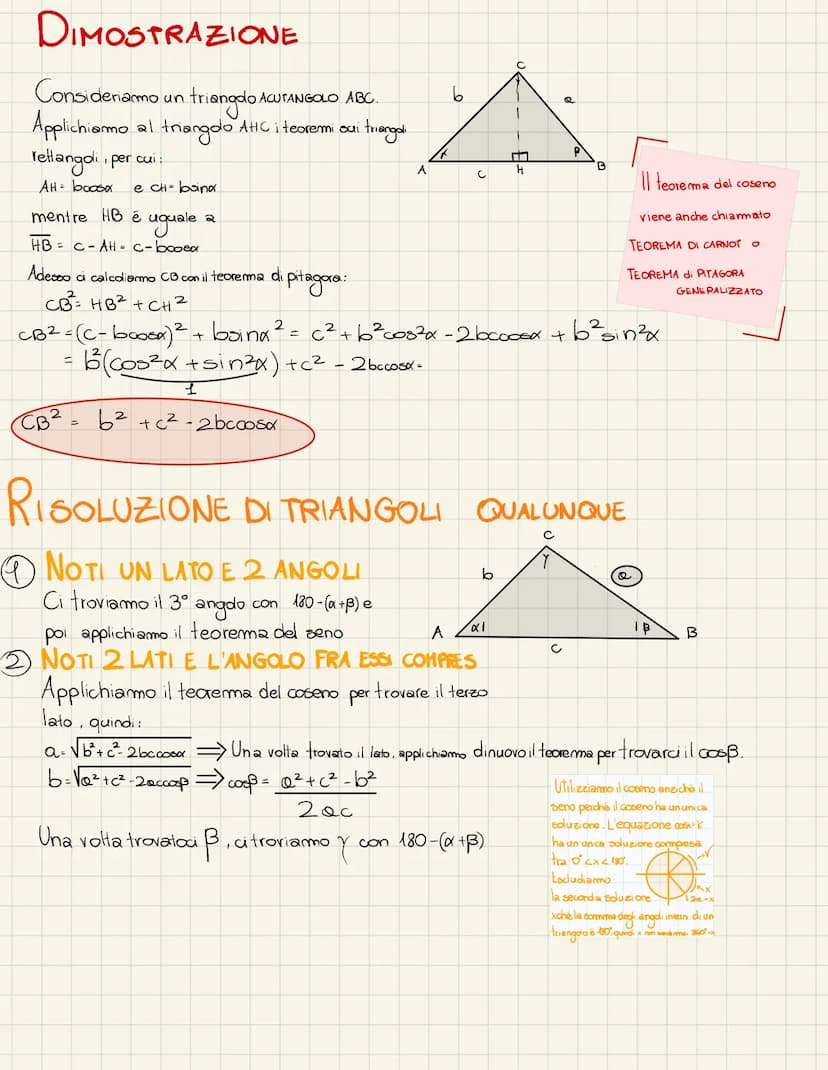 DIMOSTRAZIONE
Consideriamo un triangolo ACUTANGOLO ABC.
Applichiamo al triangolo AHC i teoremi sui triangoli
rettangoli, per cui:
AH = bcosα e CH = bsinα
mentre HB é uguale a
HB = C - AH = C - bcosα
Adesso ci calcoliamo CB con il teorema di pitagora:
CB² = HB² + CH²
CB² = (C - bcosα)² + bsinα² = c² + b²cos²α - 2bccosα + b²sin²α
= b²(cos²α + sin²α) + c² - 2bccosα =
1
CB² = b² + c² - 2bccosα
C
b
a
α
β
A
C
H
B
Il teorema del coseno
viene anche chiammato
TEOREMA DI CARNOT o
TEOREMA di PITAGORA
GENERALIZZATO
RISOLUZIONE DI TRIANGOLI QUALUNQUE
1 NOTI UN LATO E 2 ANGOLI
Ci troviamo il 3° angolo con 180-(α+β) e
poi applichiamo il teorema del seno
C
γ
b
a
A
α
β
B
C
2 NOTI 2 LATI E L'ANGOLO FRA ESSI COMPRES
Applichiamo il teorema del coseno per trovare il terzo
lato, quindi:
a = √b² + c² - 2bccosα ⇒ Una volta trovato il lato, applichiamo dinuovo il teorema per trovarci il cosβ.
b = √a² + c² - 2accosβ ⇒ cosβ = a² + c² - b²
2ac
Una volta trovatoci β, ci troviamo γ con 180-(α+β)
Utilizziamo il coseno anzichè il
seno perchè il coseno ha un unica
soluzione. L'equazione
ha un'unca soluzione compresa
tra 0° < x < 180°.
Escludiamo
la seconda soluzione
xchè la somma degli angoli interni di un
triangolo è 180°, quindi x non 360°
x
2π-x